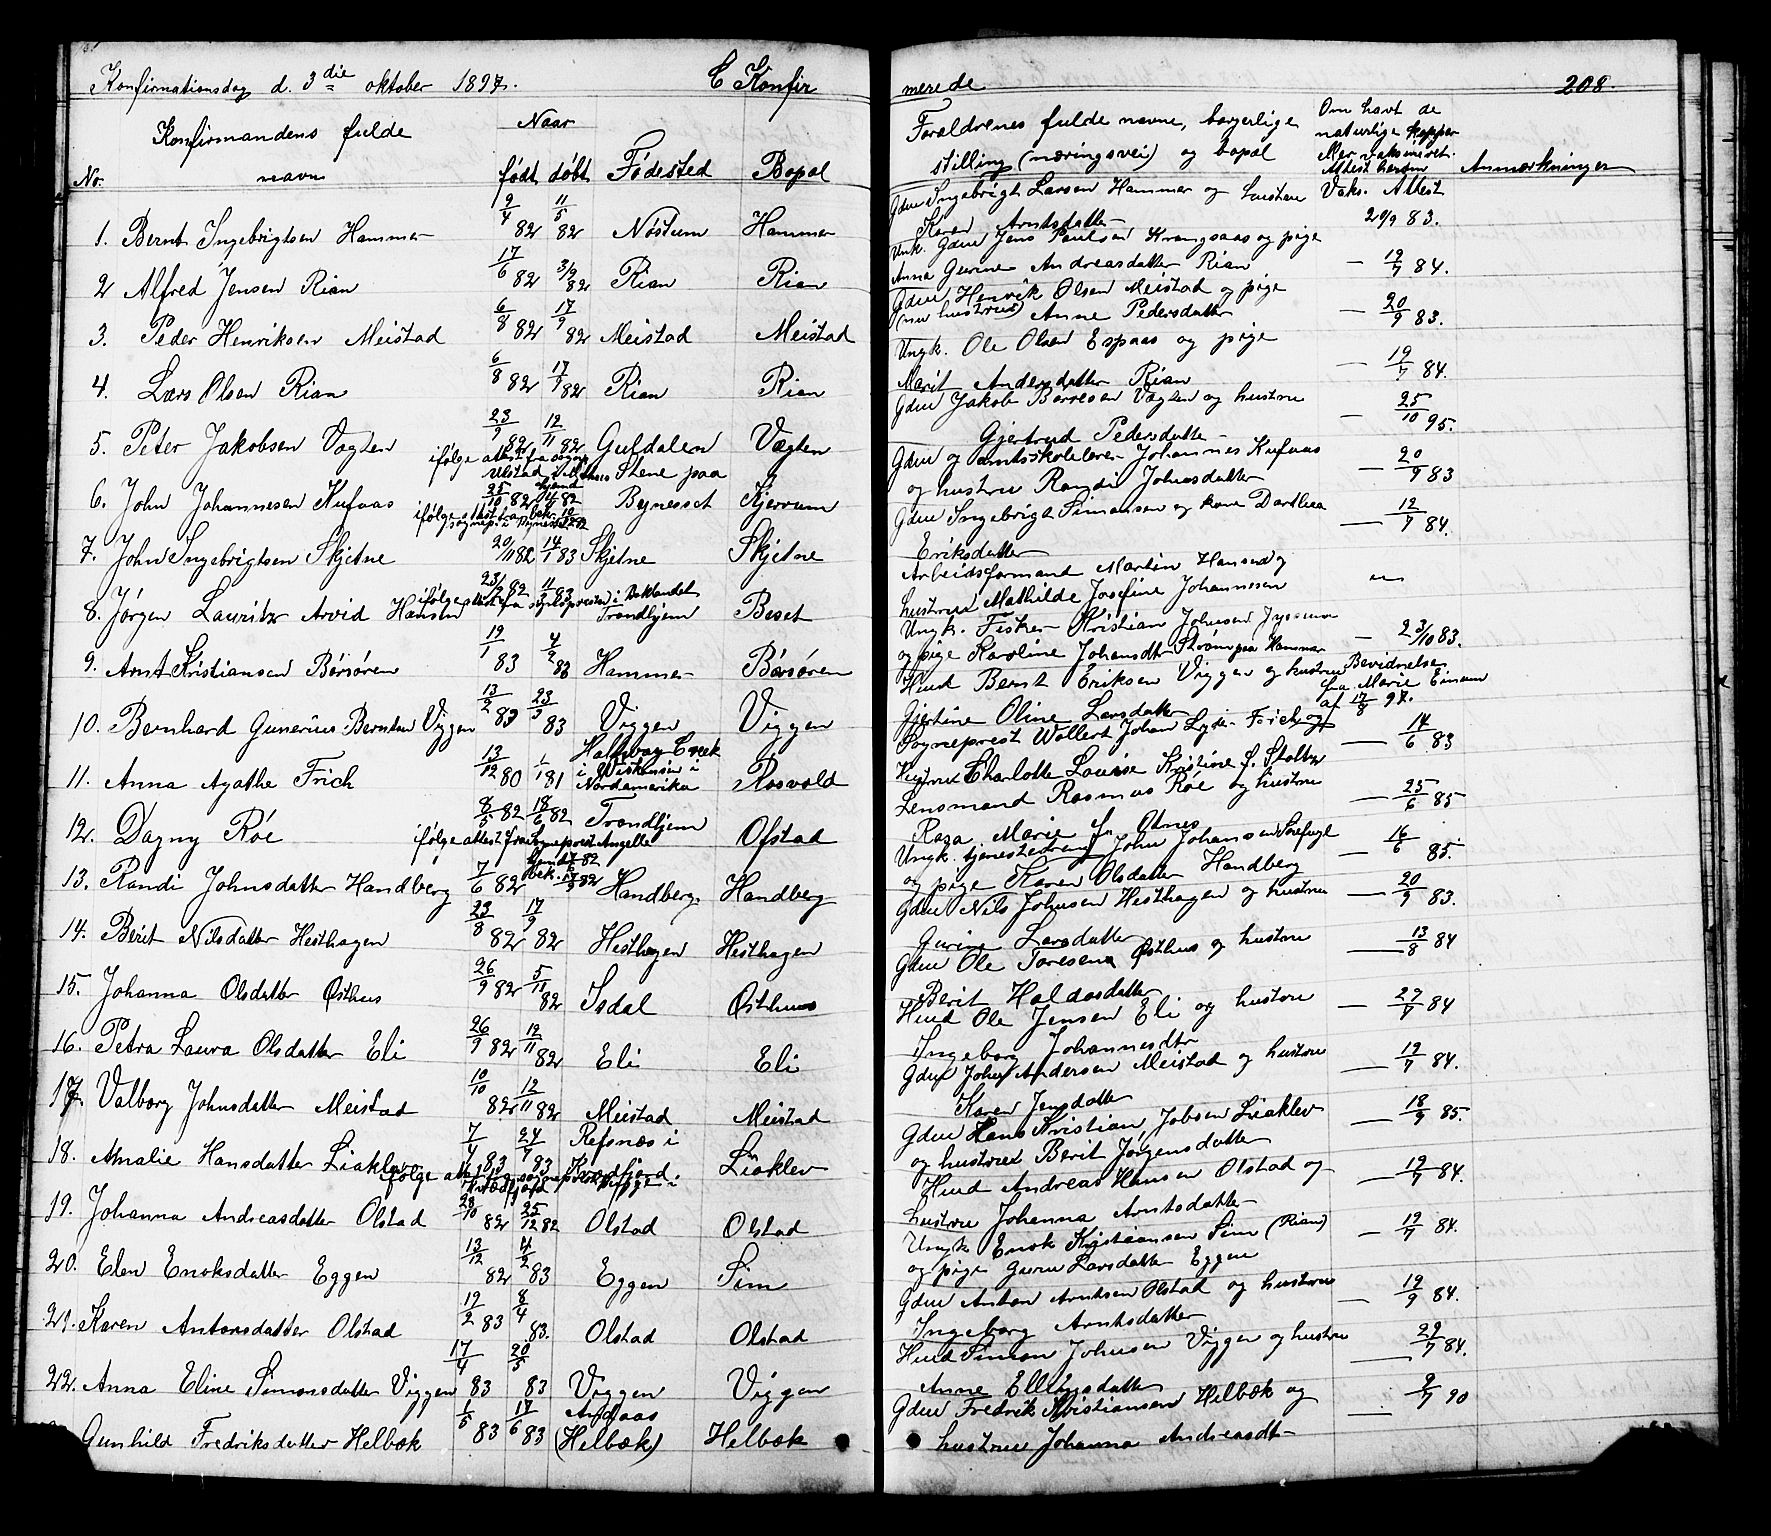 Konfirmationsdag d. 3die oktober 1897. C Konfirmerede 208.
No. Konfirmandens fulde navn Naar født døbt Fødested Bopæl Forældrenes fulde navne, borgerlige stilling (næringsvei) og bopæl Om havt de naturlige kopper eller vaksineret. Attest herom Anmærkninger
1. Bernt Ingebrigtsen Hammer 9/4 82 11/5 82 Nøstum Hammer Gdm Ingebrigt Larsen Hammer og hustru Vaks. Attest
Karen Arntsdatter 20/9 83.
2 Alfred Jensen Rian 17/6 82 3/9 82 Rian Rian Unk. Gdm Jens Paulsen og pige
Anna Gurine Andreasdatter Rian — 19/7 84.
3. Peder Henriksen Meistad 6/8 82 17/9 82 Meistad Meistad Gdm Henrik Olsen Meistad og pige
(nu hustru) Anne Pedersdatter — 20/9 83.
4. Lars Olsen Rian 6/8 82 17/9 82 Rian Rian Ungk. Ole Olsen Espaas og pige
Marit Andersdatter Rian — 19/7 84.
5. Peter Jakobsen Vagten 23/9 82 12/11 82 Guldalen Vægten Gdm Jakob Børresen Vægten og hustru
Gjertrud Pedersdatter — 25/10 95.
6. John Johannesen Kufaas 25/10 82 Stene paa Bynesset Kjerrum Gdm og amtsskolelærer Johannes Kufaas
og hustru Randi Johnsdatter — 20/9 83
7. John Ingebrigtsen Skjetne 20/11 82 14/1 83 Skjetne Skjetne Gdm Ingebrigt Simonsen og kone Dorthea
Eriksdatter — 12/7 84.
8. Jørgen Lauritz Arvid Hansen 23/12 82 11/3 83 Trondhjem Beset Arbeidsformand Martin Hansen og
hustru Mathilde Josefine Johannesen
ifølge attest fra sognepresten i Baklandet
9. Arnt Kristiansen Børsøren 19/1 83 4/2 83 Hammer Børsøren Ungk. Fisker Kristian Johnsen
og pige Karoline Johansdtr Strøm paa Hammer — 23/10 83.
10. Bernhard Gunerius Berntsen Viggen 13/2 83 23/3 83 Viggen Viggen Husmd Bernt Eriksen Viggen og hustru Bevidnelse fra Marie
Gjertine Oline Larsdatter af 17/8 97.
11. Anna Agathe Frich 13/12 80 1/1 81 i Wiskonsin i Nordamerika Rosvold Sogneprest Wollert Johan Lyder Frich og
hustru Charlotte Louise Kristine f. Stoltz — 14/6 83
12. Dagny Róe 8/5 82 18/6 82 Trondhjem Ofstad Lensmand Rasmus Róe og hustru
Marie f. Olnes — 25/6 85
13. Randi Johnsdatter Handberg 7/6 82 Handberg. Handberg Ungk. tjenestedreng John Johansen
og pige Karen Olsdatter Handberg — 16/6 85.
14. Berit Nilsdatter Hesthagen 23/8 82 17/9 82 Hesthagen Hesthagen Gdm Nils Johnsen Hesthagen og hustru
Gurine Larsdatter — 20/9 83.
15. Johanna Olsdatter Østhus 26/9 82 5/11 82 Isdal Østhus Gdm Ole Toresen Østhus og hustru
Berit Haldosdatter — 13/8 84
16. Petra Laura Olsdatter Eli 26/9 82 12/11 82 Eli Eli Husmd Ole Jensen Eli og hustru
Ingeborg Johannesdtr — 29/7 84
17 Valborg Johnsdatter Meistad 10/10 82 12/11 82 Meistad Meistad Gdm John Andersen Meistad og hustru
Karen Jensdatter — 19/7 84.
18. Amalie Hansdatter Liaklev 7/1 83 24/7 83 Refsnæs i Kvædfjord Liaklev Gdm Hans Kristian Jobsen Liaklev
og hustru Berit Jørgensdatter — 18/9 85.
19. Johanna Andreasdatter Olstad 28/10 82 25/12 82 Olstad Olstad Husmd Andreas Hansen Olstad og
hustru Johanna Arntsdatter — 19/7 84.
20. Elen Enoksdatter Eggen 13/12 82 4/2 83 Eggen Sim Ungk Enok Kristiansen Sim (Rian)
og pige Guru Larsdatter Eggen — 19/7 84.
21. Karen Antonsdatter Olstad 19/2 83 8/4 83. Olstad Olstad Gdm Anton Arntsen Olstad og hustru
Ingeborg Arntsdatter — 19/9 84.
22. Anna Eline Simonsdatter Viggen 17/4 83 20/5 83 Viggen Viggen Husmd Simon Johnsen Viggen og hustru
Anne Ellingsdatter — 29/7 84.
Gunhild Fredriksdatter Helbæk 1/5 83 17/6 83 (Helbæk) Helbæk Gdm Fredrik Kristiansen Helbæk og
hustru Johanna Andreasdt — 9/7 90